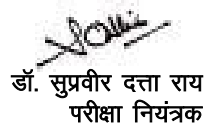 डॉ. सुप्रवीर दत्ता राय
परीक्षा नियंत्रक